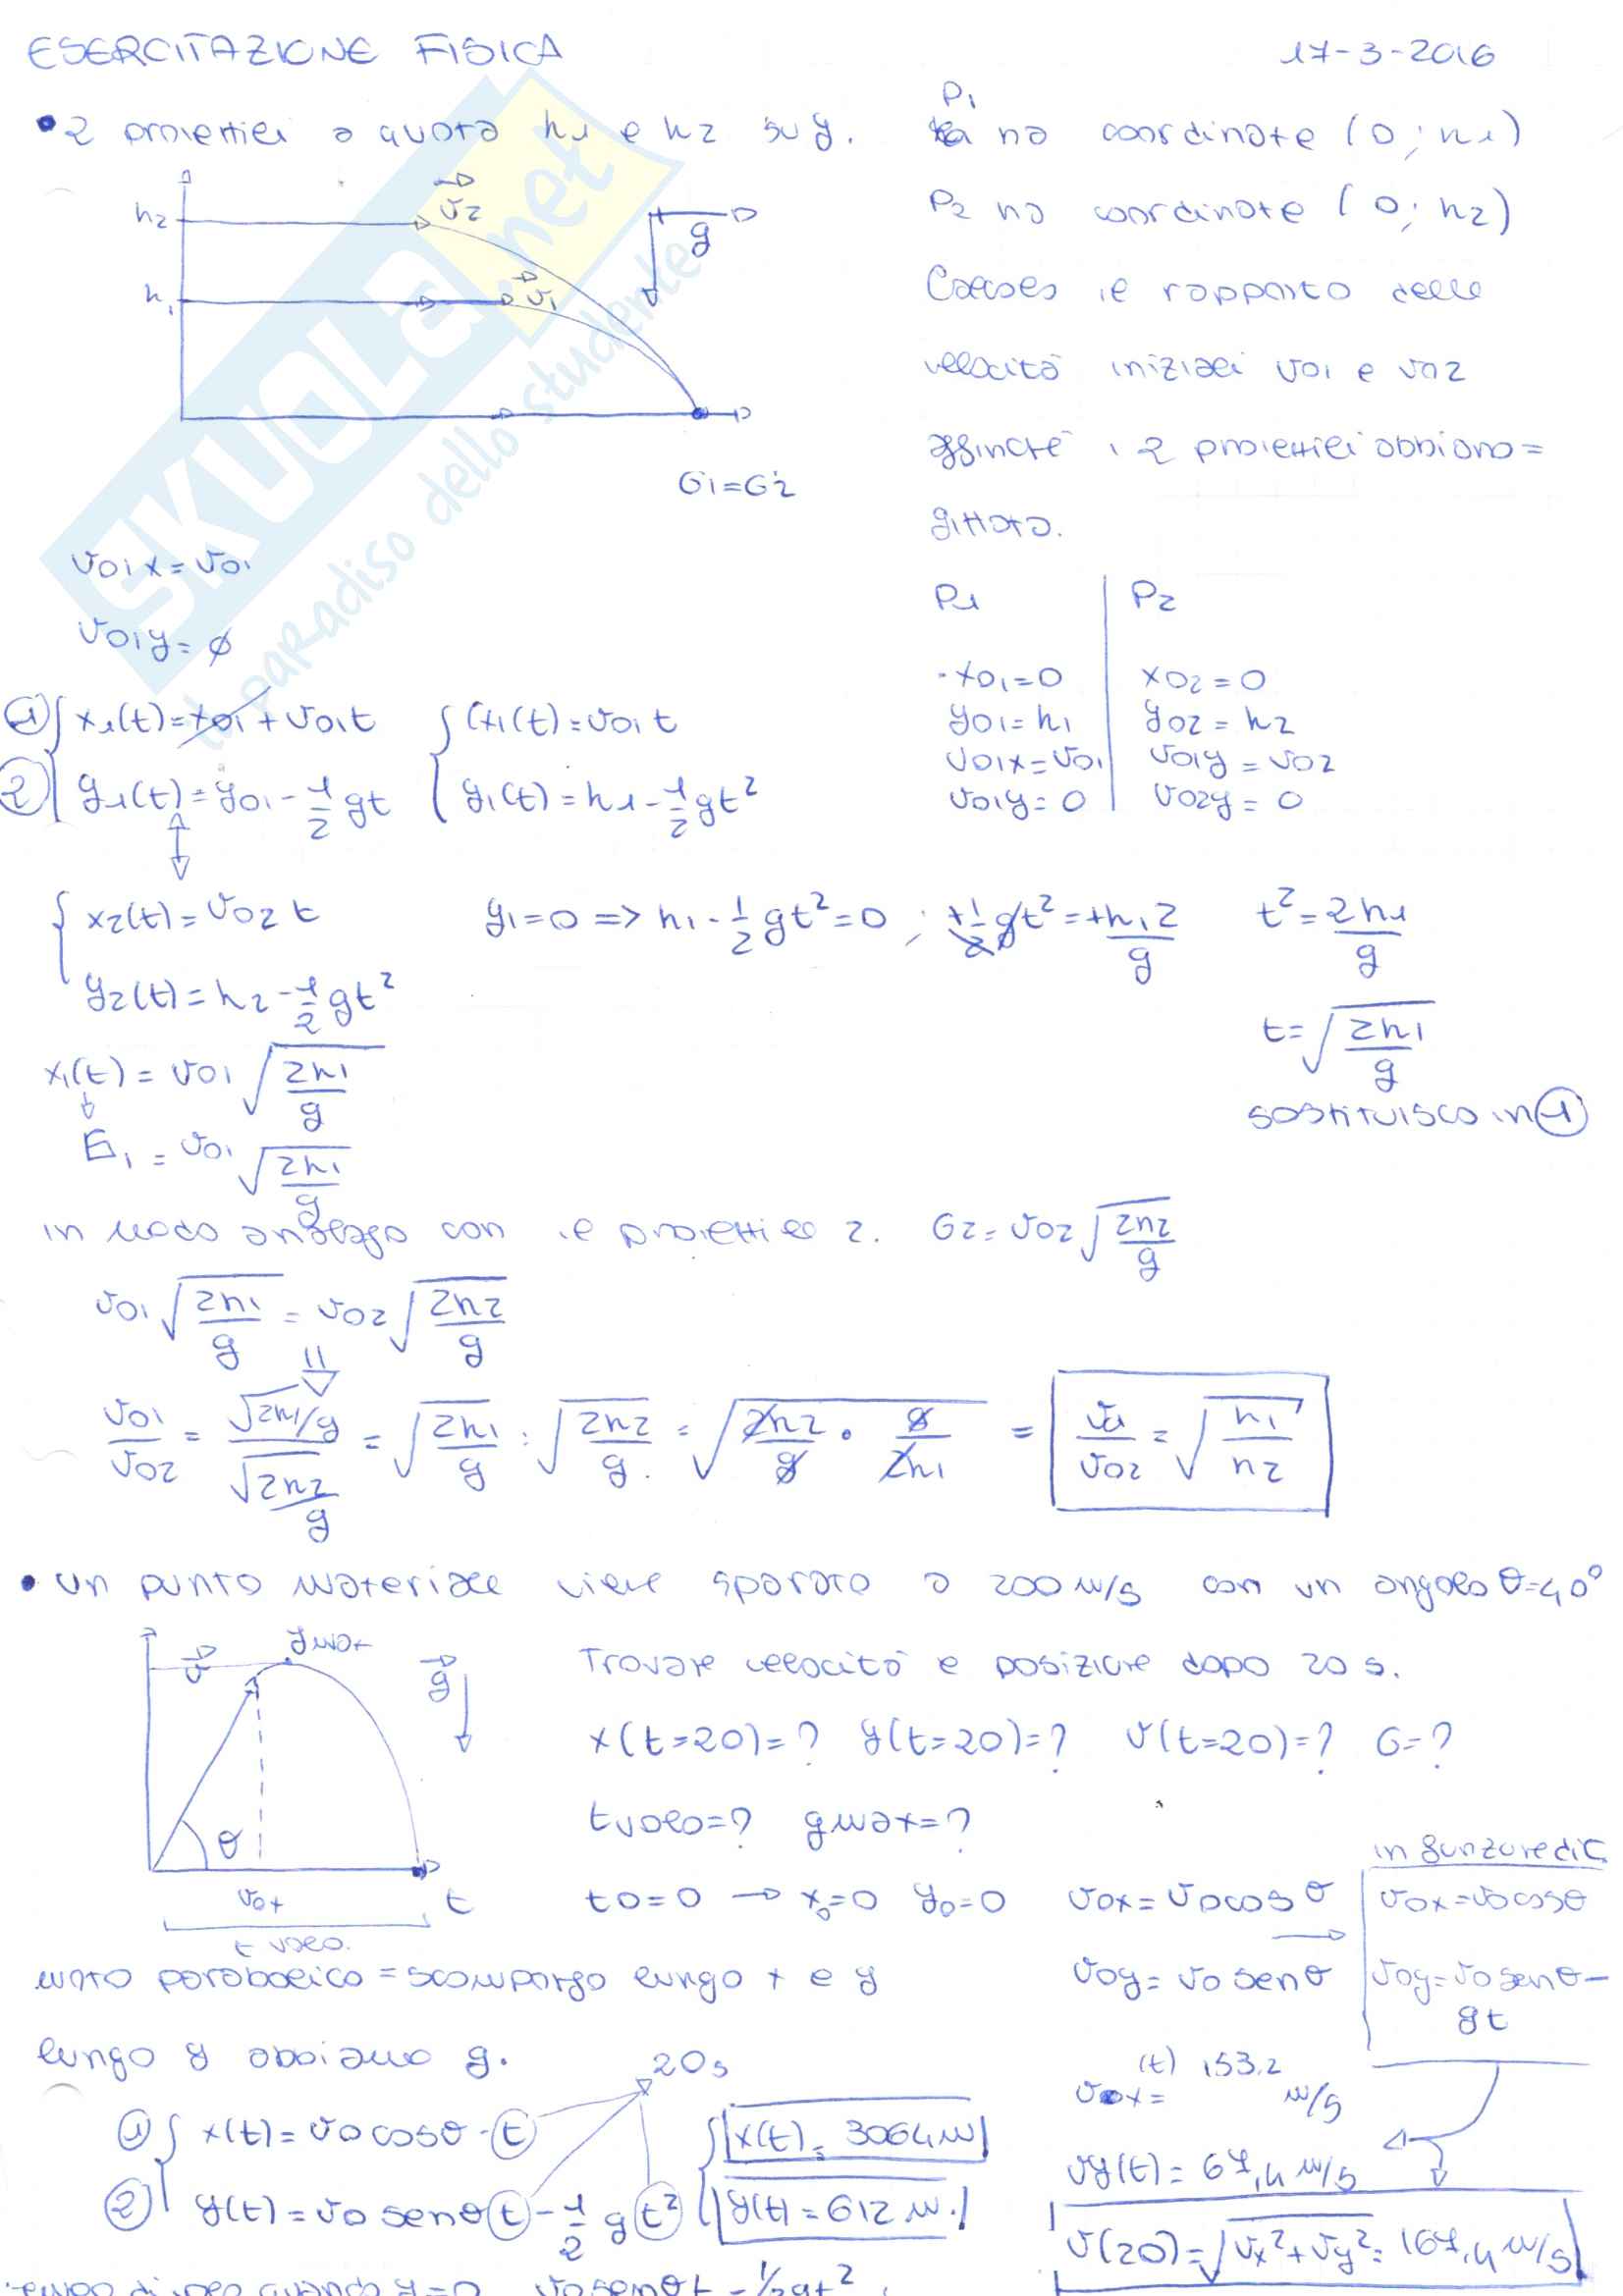 ESERCITAZIONE FISICA 17-3-2016
• 2 proiettili a quota h1 e h2 su y.
P1 ha coordinate (0; h1)
P2 ha coordinate (0; h2)
Calcola il rapporto delle
velocità iniziali v01 e v02
affinché i 2 proiettili abbiano =
gittata.
h2
v2
h1
v1
g
G1=G2
SKUOLa.net
il paradiso dello studente
v01x = v01
v01y = ∅
P1 | P2
x01=0 | x02=0
y01=h1 | y02=h2
v01x=v01 | v01y=v02
v01y=0 | v02y=0
① { x1(t)=x01+v01t { x1(t)=v01t
② { y1(t)=y01-1/2 gt { y1(t)=h1-1/2 gt²
{ x2(t)=v02 t
{ y2(t)=h2-1/2 gt²
y1=0 => h1-1/2 gt²=0 ; +1/2 gt²=+h12/g t²=2h1/g
t=√(2h1/g)
sostituisco in ①
x1(t) = v01 √(2h1/g)
G1 = v01 √(2h1/g)
in modo analogo con il proiettile 2. G2=v02 √(2h2/g)
v01 √(2h1/g) = v02 √(2h2/g)
v01/v02 = √(2h1/g)/√(2h2/g) = √(2h1/g) : √(2h2/g) = √(2h2/g • g/2h1) = v01/v02 = √(h1/h2)
• un punto materiale viene sparato a 200 m/s con un angolo θ=40°
Trovare velocità e posizione dopo 20 s.
x(t=20)=? y(t=20)=? v(t=20)=? G=?
tvolo=? ymax=?
v
ymax
g
θ
v0x
t
t volo
t0=0 → x0=0 y0=0 v0x=v0cosθ
v0y=v0senθ
in funzione di t
v0x=v0cosθ
v0y=v0senθ-
gt
moto parabolico = scompongo lungo x e y
lungo y abbiamo g.
20s
① { x(t)=v0cosθ·t { x(t)= 3064m
② { y(t)=v0senθt-1/2 gt² { y(t)=612 m.
v0x=(t) 153.2 m/s
vy(t)=67,4 m/s
v(20)=√(vx²+vy²)= 167,4 m/s
tempo di volo quando y=0 v0senθt-1/2gt²